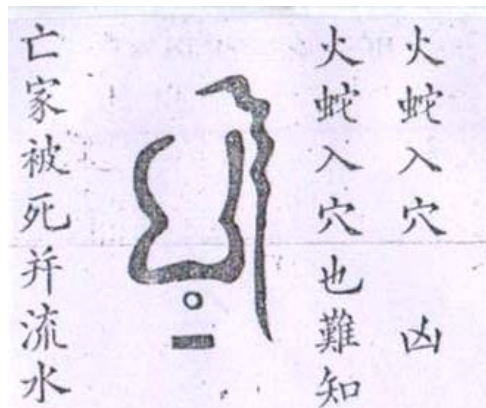 火蛇入穴 凶
火蛇入穴也難知
亡家被死并流水